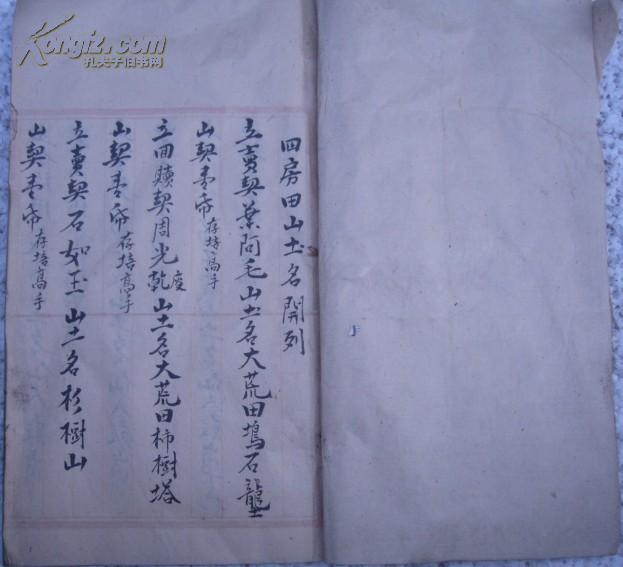 四房田山土名開列
立賣契葉阿毛山土名大荒田塢石壟
山契壱帋存培高手
立回贖契周光乾山土名大荒田柿樹塔
座
山契壱帋存培高手
立賣契石如玉山土名杉樹山
山契壱帋存培高手
Kongfz.com
孔夫子旧书网